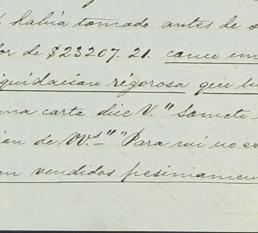 había tomado antes de
or de $23207.21. como em
quidacion rigorosa que h
una carta dice V. "Someto
ion de VV.s" "Para mi no es
en vendidos pesimamen